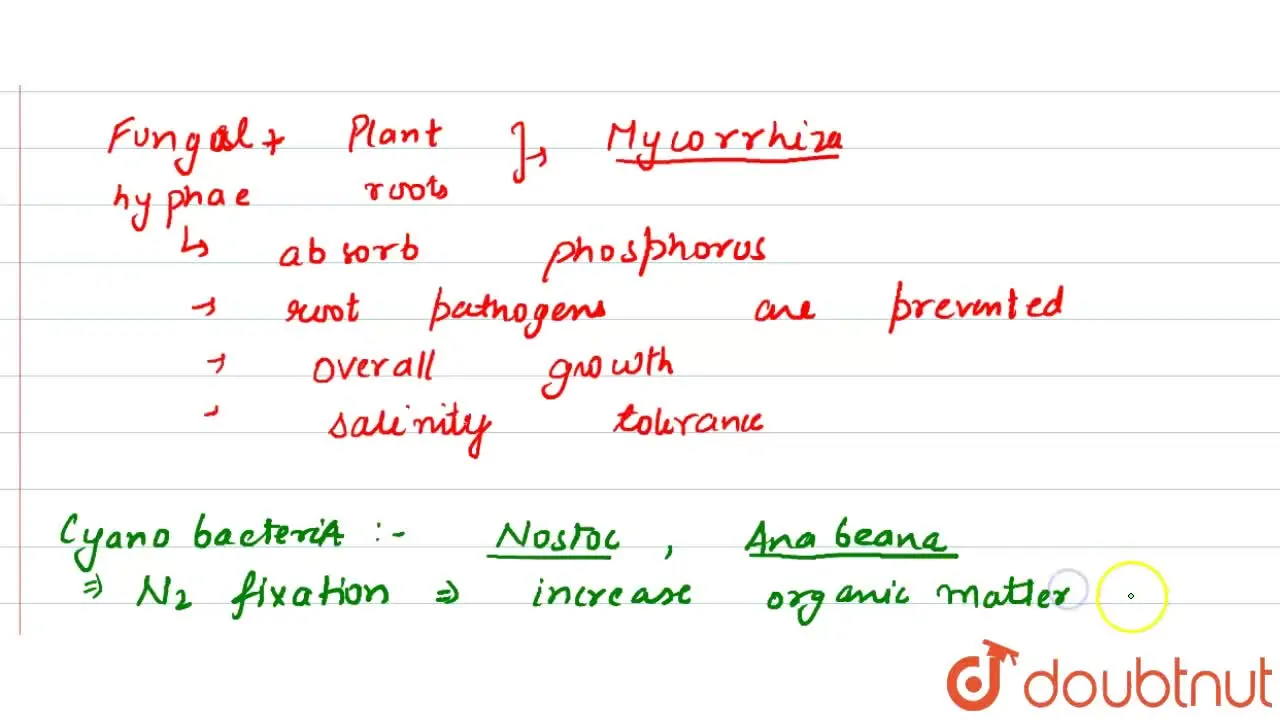 Fungal + Plant ]→ Mycorrhiza
hyphae roots
↳ absorb phosphorus
→ root pathogens are prevented
→ overall growth
→ salinity tolerance
Cyano bacteriA :- Nostoc , Anabeana
⇒ N2 fixation ⇒ increase organic matter
doubtnut